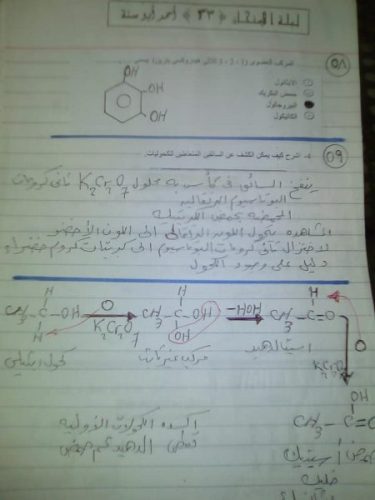 ليلة الإمتحان (٣٣) أحمد أبو سنة
٥٨
المركب العضوى (1 ، 2 ، 3 ثلاثى هيدروكسى بنزين) يسمى
الإيثانول
حمض البكريك
البيروجالول
الكاتيكول
OH
OH
OH
٥٩
4- اشرح كيف يمكن الكشف عن السائقين المتعاطين للكحوليات.
ينفخ السائق فى كأس به محلول K2Cr2O7 ثانى كرومات
البوتاسيوم البرتقاليه
المحمضه بحمض الكبريتيك
المشاهده يتحول اللون البرتقالى الى اللون الأخضر
لاختزال ثانى كرومات البوتاسيوم الى كبريتات كروم خضراء
دليل على وجود الكحول
H
CH3 - C - OH
H
O
K2Cr2O7
H
CH3 - C - OH
OH
-HOH
H
CH3 - C = O
O
K2Cr2O7
كحول إيثيلى
مركب غير ثابت
اسيتالدهيد
OH
CH3 - C = O
اكسده الكحولات الأوليه
تعطى الدهيد ثم حمض
حمض أسيتيك